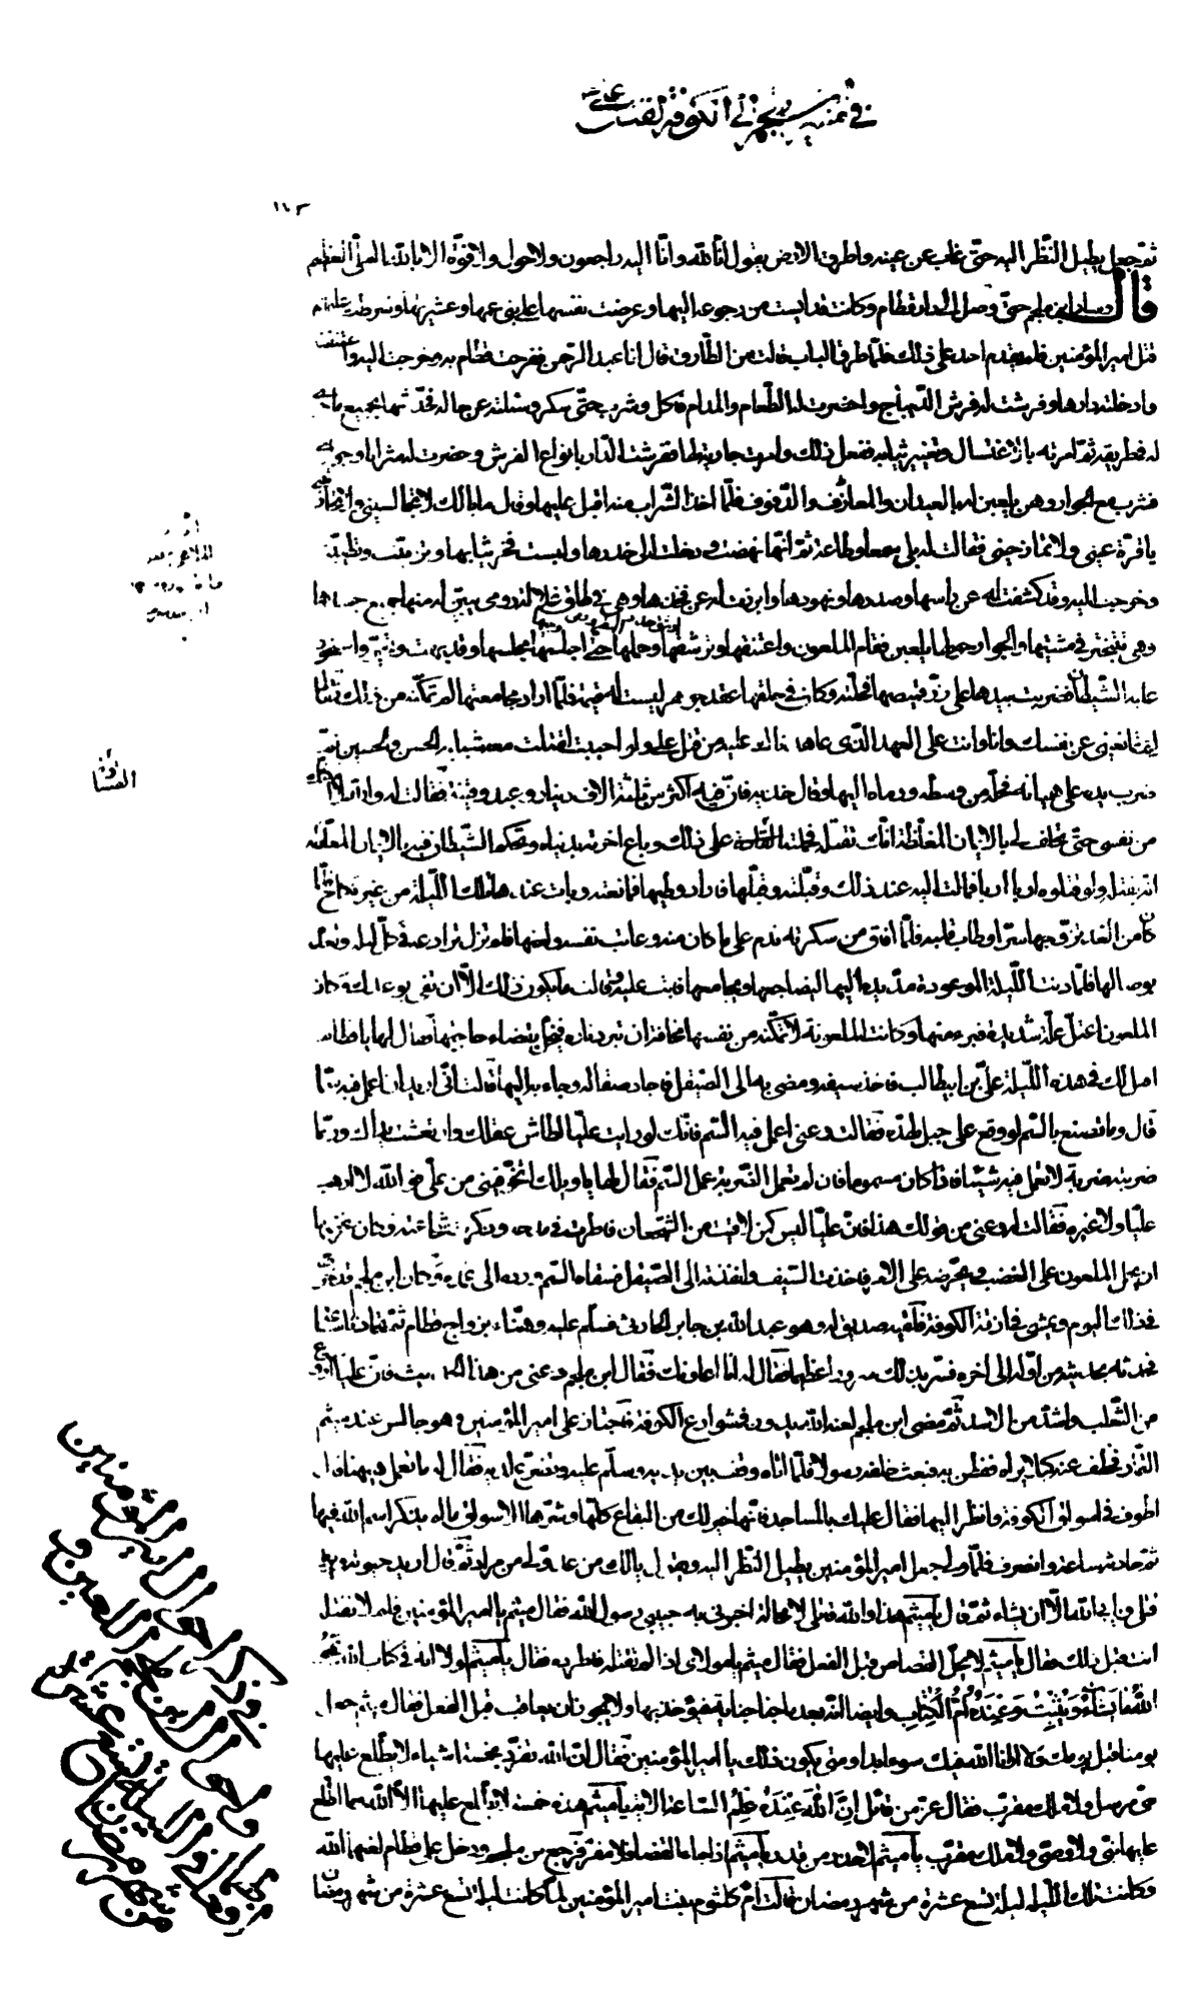 في
١١٣
ثمّ جعل يطيل النّظر اليه حتّى غاب عن عينه واطرق الارض يقول انّا للّه وانّا اليه راجعون ولا حول ولا قوّة الّا باللّه العلىّ العظيم
قال وسار ابن ملجم حتّى وصل الى دار قطام وكانت قد ايست من رجوعه اليها وعرضت نفسها على بنى عمّها وعشيرتها وشرطت عليهم
قتل امير المؤمنين فلم يقدم احد على ذلك فلمّا طرق الباب قالت من الطّارق قال انا عبد الرّحمن ففرحت قطام به وخرجت اليه واعتنقته
وادخلته دارها وفرشت له فرش الدّيباج واحضرت له الطّعام والمدام فاكل وشرب حتّى سكر وسئلته عن حاله فحدّثها بجميع ما
له فى طريقه ثمّ امرته بالاغتسال وتغيير ثيابه ففعل ذلك وامرت جارية لها ففرشت الدّار بانواع الفرش وحضرت له شرابا
فشرب مع الجوار وهن يلعبن له بالعيدان والمعازف والدّفوف فلمّا اخذ الشّراب منه اقبل عليها وقال ما بالك لا تجالسينى
يا قرّة عينى ولا تمازحينى فقالت له بلى سمعا وطاعة ثمّ انّها نهضت ودخلت الى خدرها ولبست افخر ثيابها وتزيّنت وتطيّبت
وخرجت اليه وقد كشفت له عن راسها وصدرها ونهودها وابرزت له عن فخذيها وهى فى طاق غلالة رومى يبيّن له منها جميع جسدها
وهى تتبختر فى مشيتها والجوار حولها يلعبن فقام الملعون واعتنقها وترشّفها وحملها حتّى اجلسها مجلسها وقد بهت وتحيّر واستحوذ
عليه الشّيطان فضربت بيدها على زرّ قميصها فحلّته وكان فى حلقها عقد جوهر ليست له قيمة فلمّا اراد مجامعتها لم تمكّنه من ذلك فقال
لم تمانعينى عن نفسك وانا وانت على العهد الّذى عاهدناك عليه من قتل علىّ ولو احببت لقتلت معه شبليه الحسن والحسين ثمّ
ضرب يده على هميانه فحلّه من وسطه ورماه اليها وقال خذيه فانّ فيه اكثر من ثلثة الاف دينار وعبد وقينة فقالت له واللّه لا
من نفسى حتّى تحلف لى بالايمان المغلّظة انّك تقتله فحملته على ذلك وباع اخرته بدنياه وتحكّم الشّيطان فيه بالايمان المغلّظة
انّه يقتله ولو قطّعوه اربا اربا فمالت اليه عند ذلك وقبّلته وقبّلها فاراد وطيها فمانعته وبات عندها تلك اللّيلة من غير نكاح فلمّا
كان من الغد تزوّج بها سرّا وطاب قلبه فلمّا افاق من سكرته ندم على ما كان منه وعاتب نفسه ولعنها فلم تزل تراوغه فى كلّ ليلة وتعده
بوصالها فلمّا دنت اللّيلة الموعودة مدّ يده اليها ليضاجعها ويجامعها فابت عليه وقالت ما يكون ذلك الّا ان تفى بوعدك وكان
الملعون اعتلّ علّة شديدة فبرء منها وكانت الملعونة لا تمكّنه من نفسها مخافة ان تبرد ناره فيخلّ بقضاء حاجتها فقال لها يا قطام
اقتل لك فى هذه اللّيلة علىّ بن ابيطالب فاخذ سيفه ومضى به الى الصّيقل فاجاد صقاله وجاء به اليها فقالت انّى اريد ان اعمل فيه سمّا
قال وما تصنع بالسّم لو وقع على جبل لهدّه فقالت دعنى اعمل فيه السّم فانّك لو رايت عليّا لطاش عقلك وارتعشت يداك وربّما
ضربته ضربة لا تعمل فيه شيئا فاذا كان مسموما فان لم تعمل الضّربة عمل السّم فقال لها يا ويلك اتخوّفينى من علىّ فو اللّه لا ارهب
عليّا ولا غيره فقالت له دعنى من قولك هذا فانّ عليّا ليس كمن لاقيت من الشّجعان فاطرى فى مدحه وذكر شجاعته وكان غرضها
ان يحمل الملعون على الغضب ويحرّضه على الامر فاخذت السّيف وانفذته الى الصّيقل فسقاه السّم وردّه الى غمده وكان ابن ملجم قد خرج
فى ذلك اليوم ويمشى فى ازقّة الكوفة فلقيه صديق له وهو عبد اللّه بن جابر الحارثى فسلّم عليه وهنّاه بزواج قطام ثمّ تحادثا ساعة
فحدّثه بحديثه من اوّله الى اخره فسرّ بذلك سرورا عظيما فقال له انا اعاونك فقال ابن ملجم دعنى من هذا الحديث فانّ عليّا اروغ
من الثّعلب واشدّ من الاسد ثمّ مضى ابن ملجم لعنه اللّه يدور فى شوارع الكوفة فاجتاز على امير المؤمنين وهو جالس عند ميثم
التّمار فخطف عنه كيلا يراه ففطن به فبعث خلفه رسولا فلمّا اتاه وقف بين يديه وسلّم عليه وتضرّع لديه فقال له ما تعمل هيهنا قال
اطوف فى اسواق الكوفة وانظر اليها فقال عليك بالمساجد فانّها خير لك من البقاع كلّها وشرّها الاسواق ما لم يذكر اسم اللّه فيها
ثمّ حادثه ساعة وانصرف فلمّا ولّى جعل امير المؤمنين يطيل النّظر اليه ويقول يا لك من عدوّ لى من مراد ثمّ قال اريد حيوته ويريد
قتلى ويابى اللّه الّا ان يشاء ثمّ قال يا ميثم هذا واللّه قاتلى لا محالة اخبرنى به حبيبى رسول اللّه فقال ميثم يا امير المؤمنين فلم لا تقتله
انت قبل ذلك فقال يا ميثم لا يحلّ القصاص قبل الفعل فقال ميثم يا مولاى اذا لم تقتله فاطرده فقال يا ميثم لولا اية فى كتاب اللّه يمحو
اللّه ما يشاء ويثبت وعنده امّ الكتاب وايضا انّه بعد ما جنى جناية فيؤخذ بها ولا يجوز ان يعاقب قبل الفعل فقال ميثم جعل اللّه
يومنا قبل يومك ولا ارانا اللّه فيك سوء ابدا ومتى يكون ذلك يا امير المؤمنين فقال انّ اللّه تفرّد بخمسة اشياء لا يطّلع عليها
نبىّ مرسل ولا ملك مقرّب فقال عزّ من قائل انّ اللّه عنده علم السّاعة الاية يا ميثم هذه خمسة لا يطّلع عليها الّا اللّه تعالى وما اطّلع
عليها نبىّ ولا وصىّ ولا ملك مقرّب يا ميثم لا حذر من قدر يا ميثم اذا جاء القضاء فلا مفرّ فرجع ابن ملجم ودخل على قطام لعنهما اللّه
وكانت تلك اللّيلة ليلة تسع عشرة من شهر رمضان قالت امّ كلثوم بنت امير المؤمنين لمّا كانت ليلة تسع عشرة من شهر رمضان
فى ذكر احوال امير المؤمنين
واحوال ابن ملجم اللعين و
افعاله فى الليلة تسعة عشر
من شهر رمضان